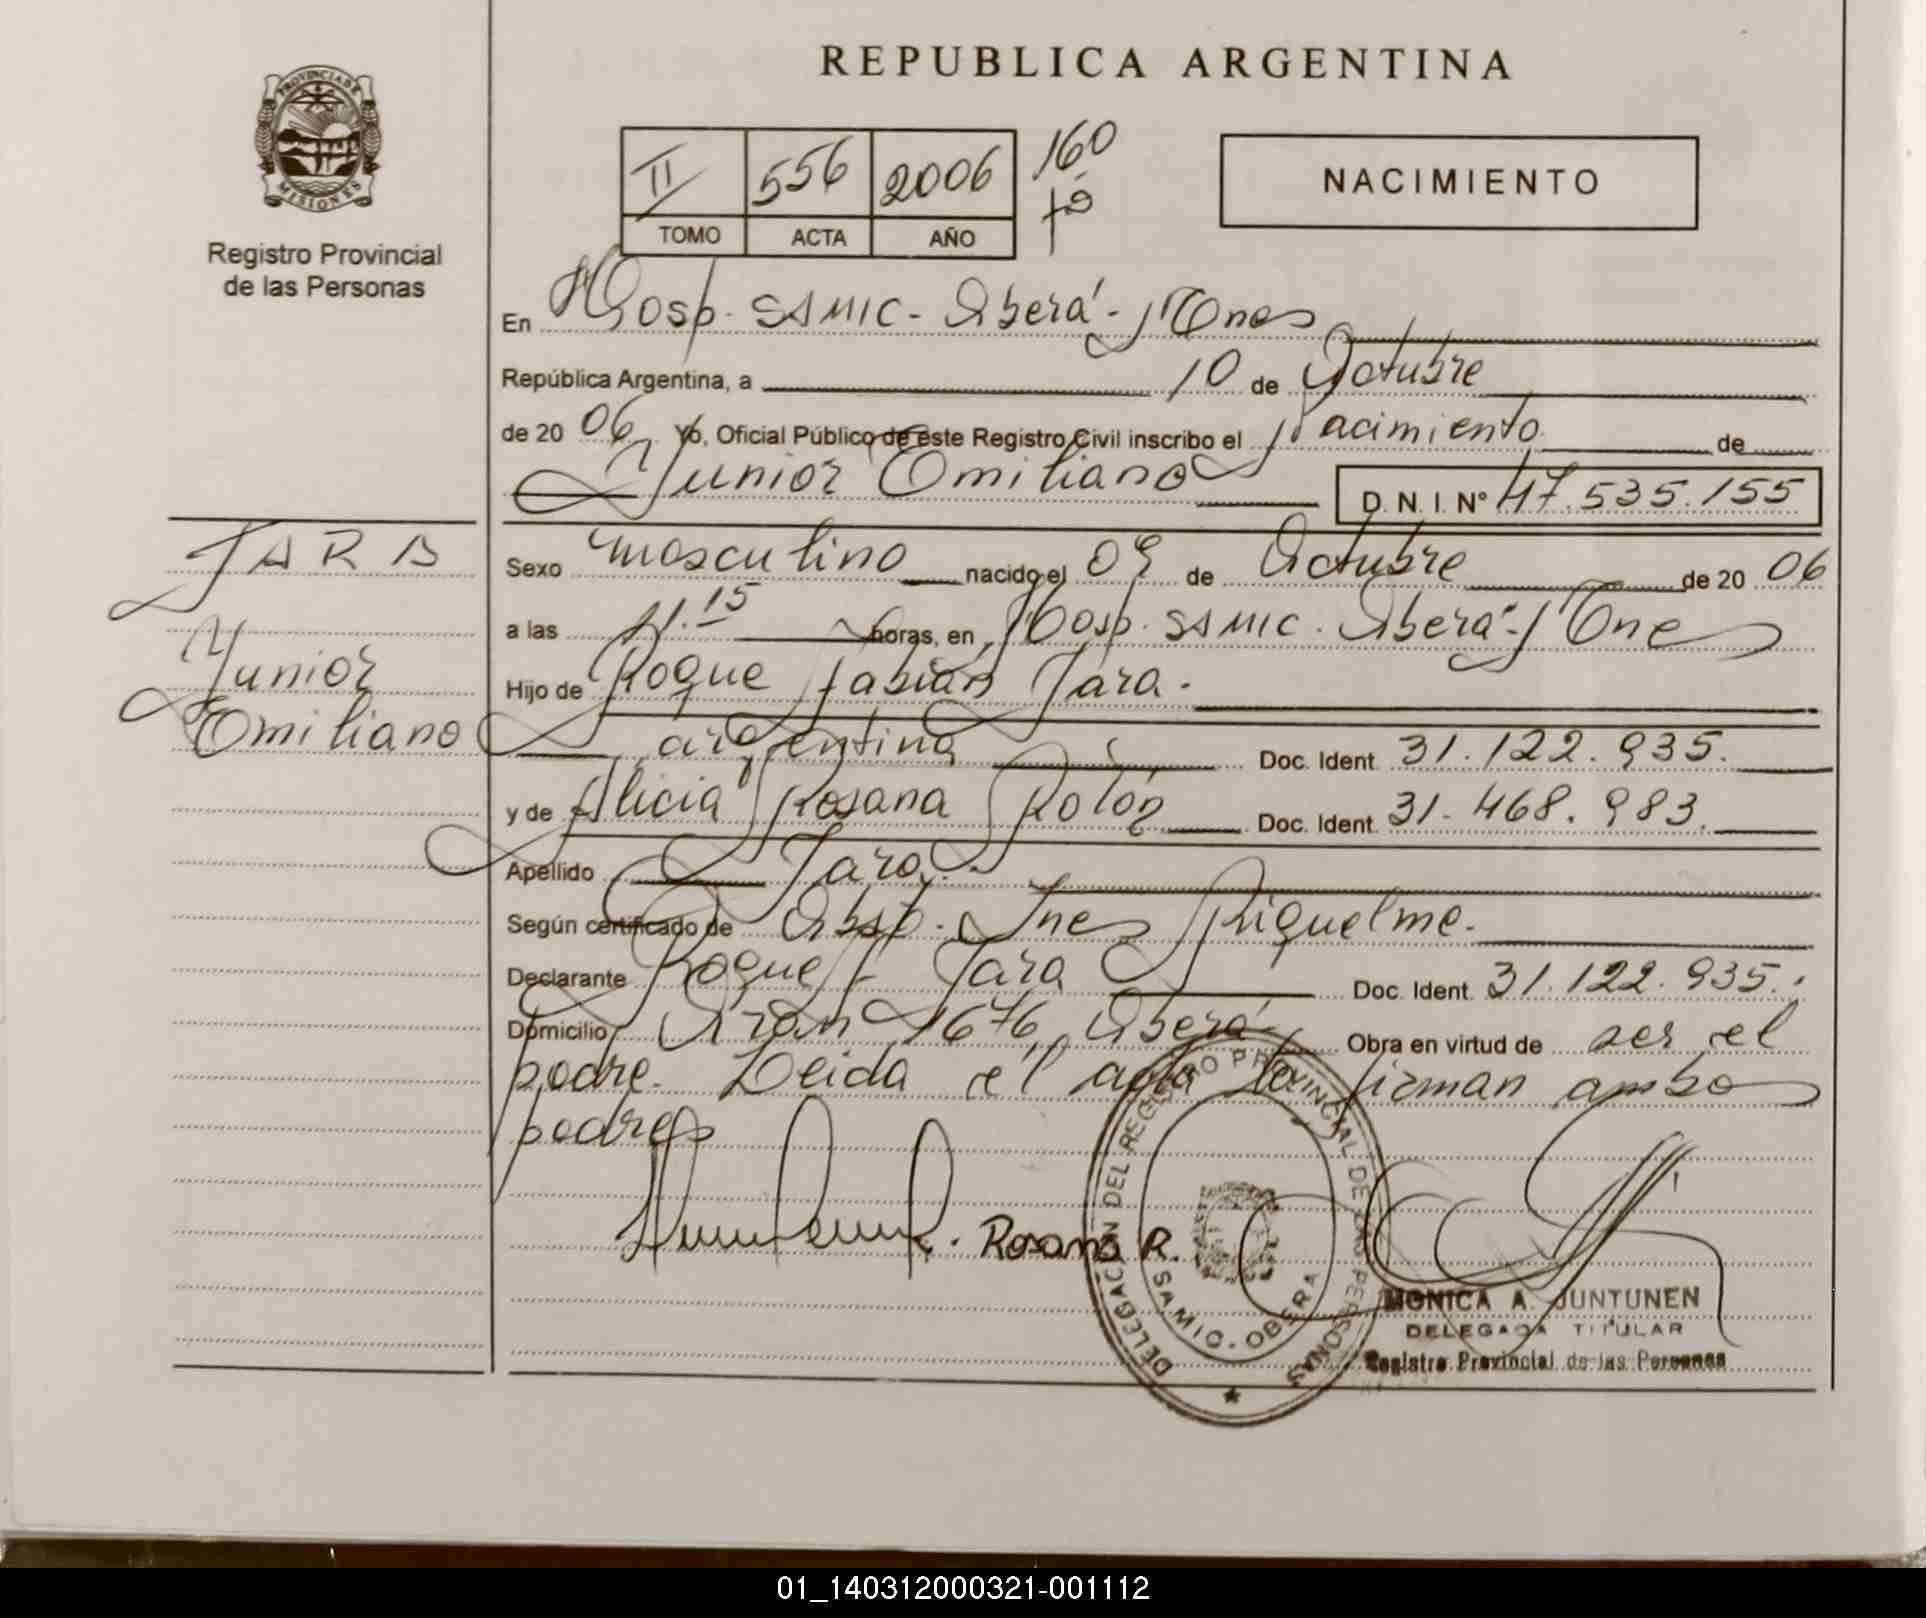 REPUBLICA ARGENTINA
PROVINCIA DE MISIONES
Registro Provincial
de las Personas
II 556 2006 160
TOMO ACTA AÑO Fº
NACIMIENTO
En Hosp. SAMIC - Oberá - Mnes
República Argentina, a 10 de Octubre
de 20 06 Yo, Oficial Público de este Registro Civil inscribo el Nacimiento de
Yunior Emiliano D. N. I. Nº 47.535.155
JARA
Yunior
Emiliano
Sexo masculino nacido el 09 de Octubre de 20 06
a las 11.15 horas, en Hosp. SAMIC. Oberá - Mnes
Hijo de Roque Fabián Jara.
argentina Doc. Ident. 31.122.935.
y de Alicia Rosana Rolón Doc. Ident. 31.468.983.
Apellido Jara.
Según certificado de Obst. Ines Riquelme.
Declarante Roque F. Jara Doc. Ident. 31.122.935.
Domicilio Orán 1676, Oberá Obra en virtud de ser el
padre. Leida el acta la firman ambos
padres
Rosana R.
DELEGACION DEL REGISTRO PROVINCIAL DE LAS PERSONAS
SAMIC - OBERA
MONICA A. JUNTUNEN
DELEGADA TITULAR
Registro Provincial de las Personas
01_140312000321-001112